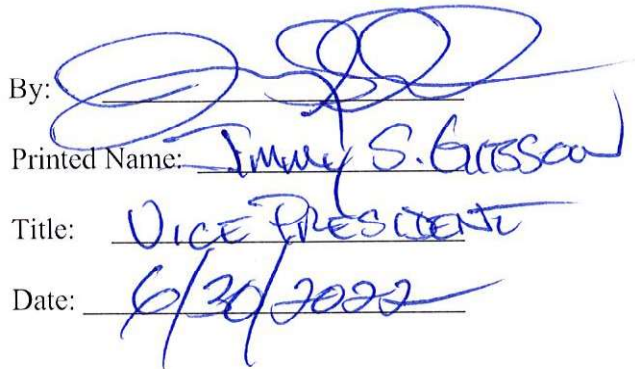 By:
Printed Name: Jimmy S. Gibson
Title: VICE PRESIDENT
Date: 6/30/2022